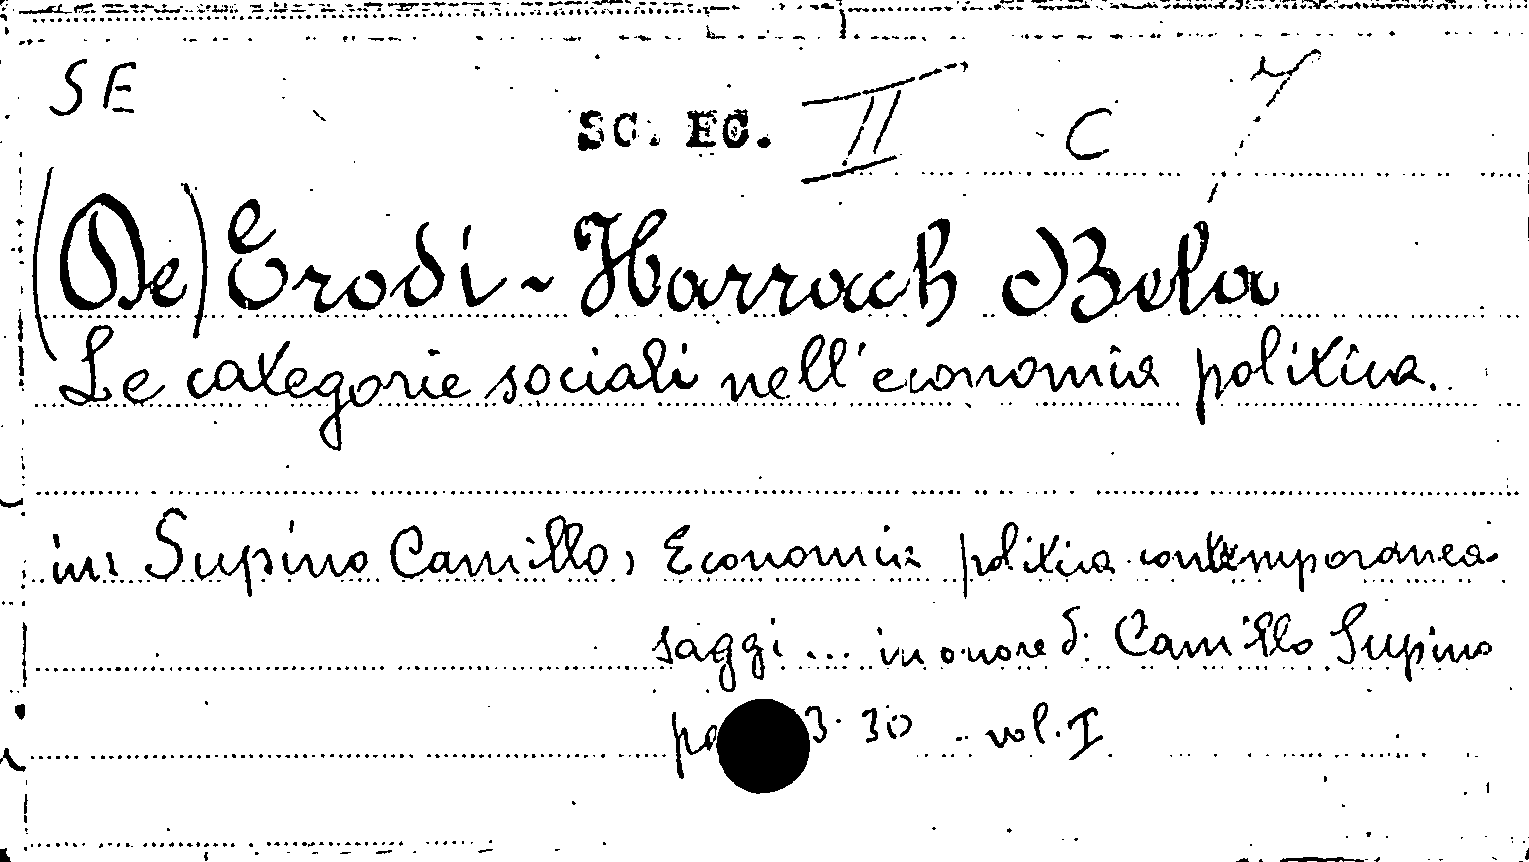 SE
SC. EC. II C 7
(De) Erodi-Harrach Bela
Le categorie sociali nell'economia politica.
in: Supino Camillo, Economia politica contemporanea
saggi ... in onore di Camillo Supino
3-30 vol. I